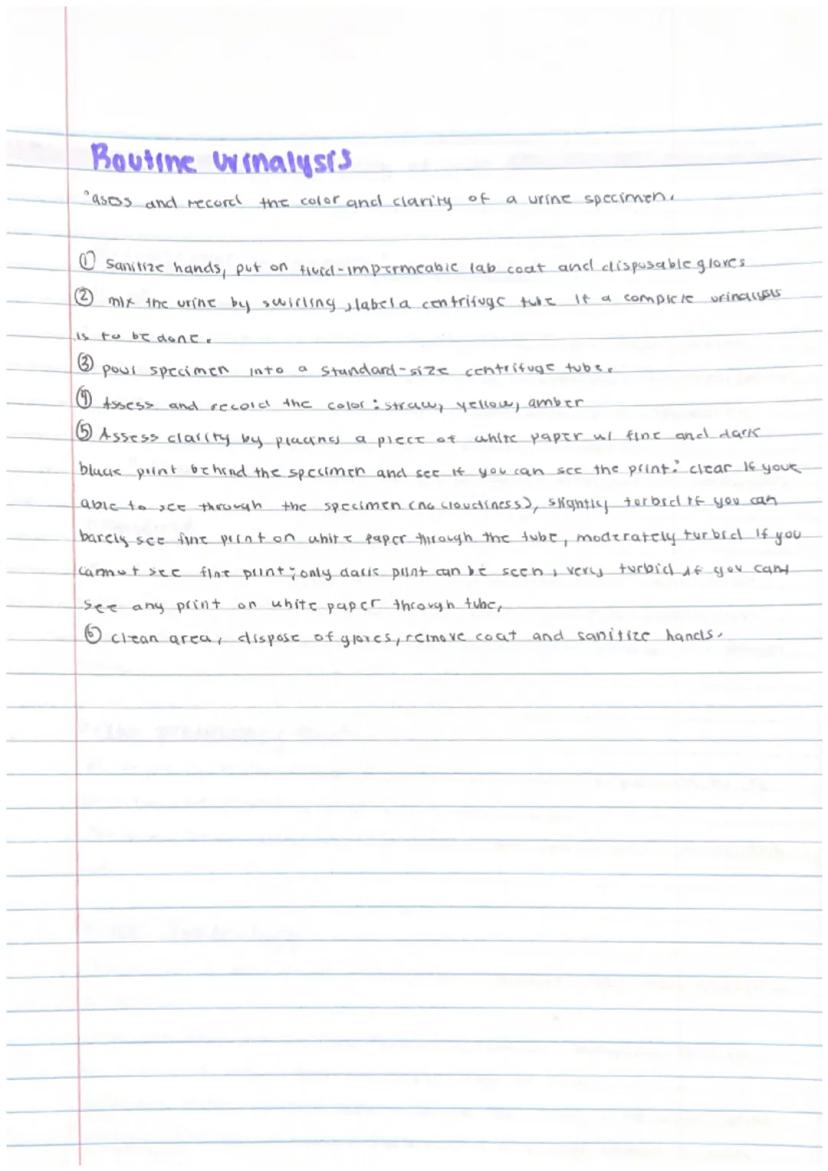 Routine urinalysis
"asess and record the color and clarity of a urine specimen.
① Sanitize hands, put on fluid-impermeable lab coat and disposable gloves
② mix the urine by swirling, label a centrifuge tube if a complete urinalysis
is to be done.
③ pour specimen into a standard-size centrifuge tube.
④ Assess and record the color: straw, yellow, amber
⑤ Assess clarity by placing a piece of white paper w/ fine and dark
black print behind the specimen and see if you can see the print: clear if your
able to see through the specimen (no cloudiness), slightly turbid if you can
barely see fine print on white paper through the tube, moderately turbid if you
cannot see fine print; only dark print can be seen, very turbid if you cant
see any print on white paper through tube,
⑥ clean area, dispose of gloves, remove coat and sanitize hands.